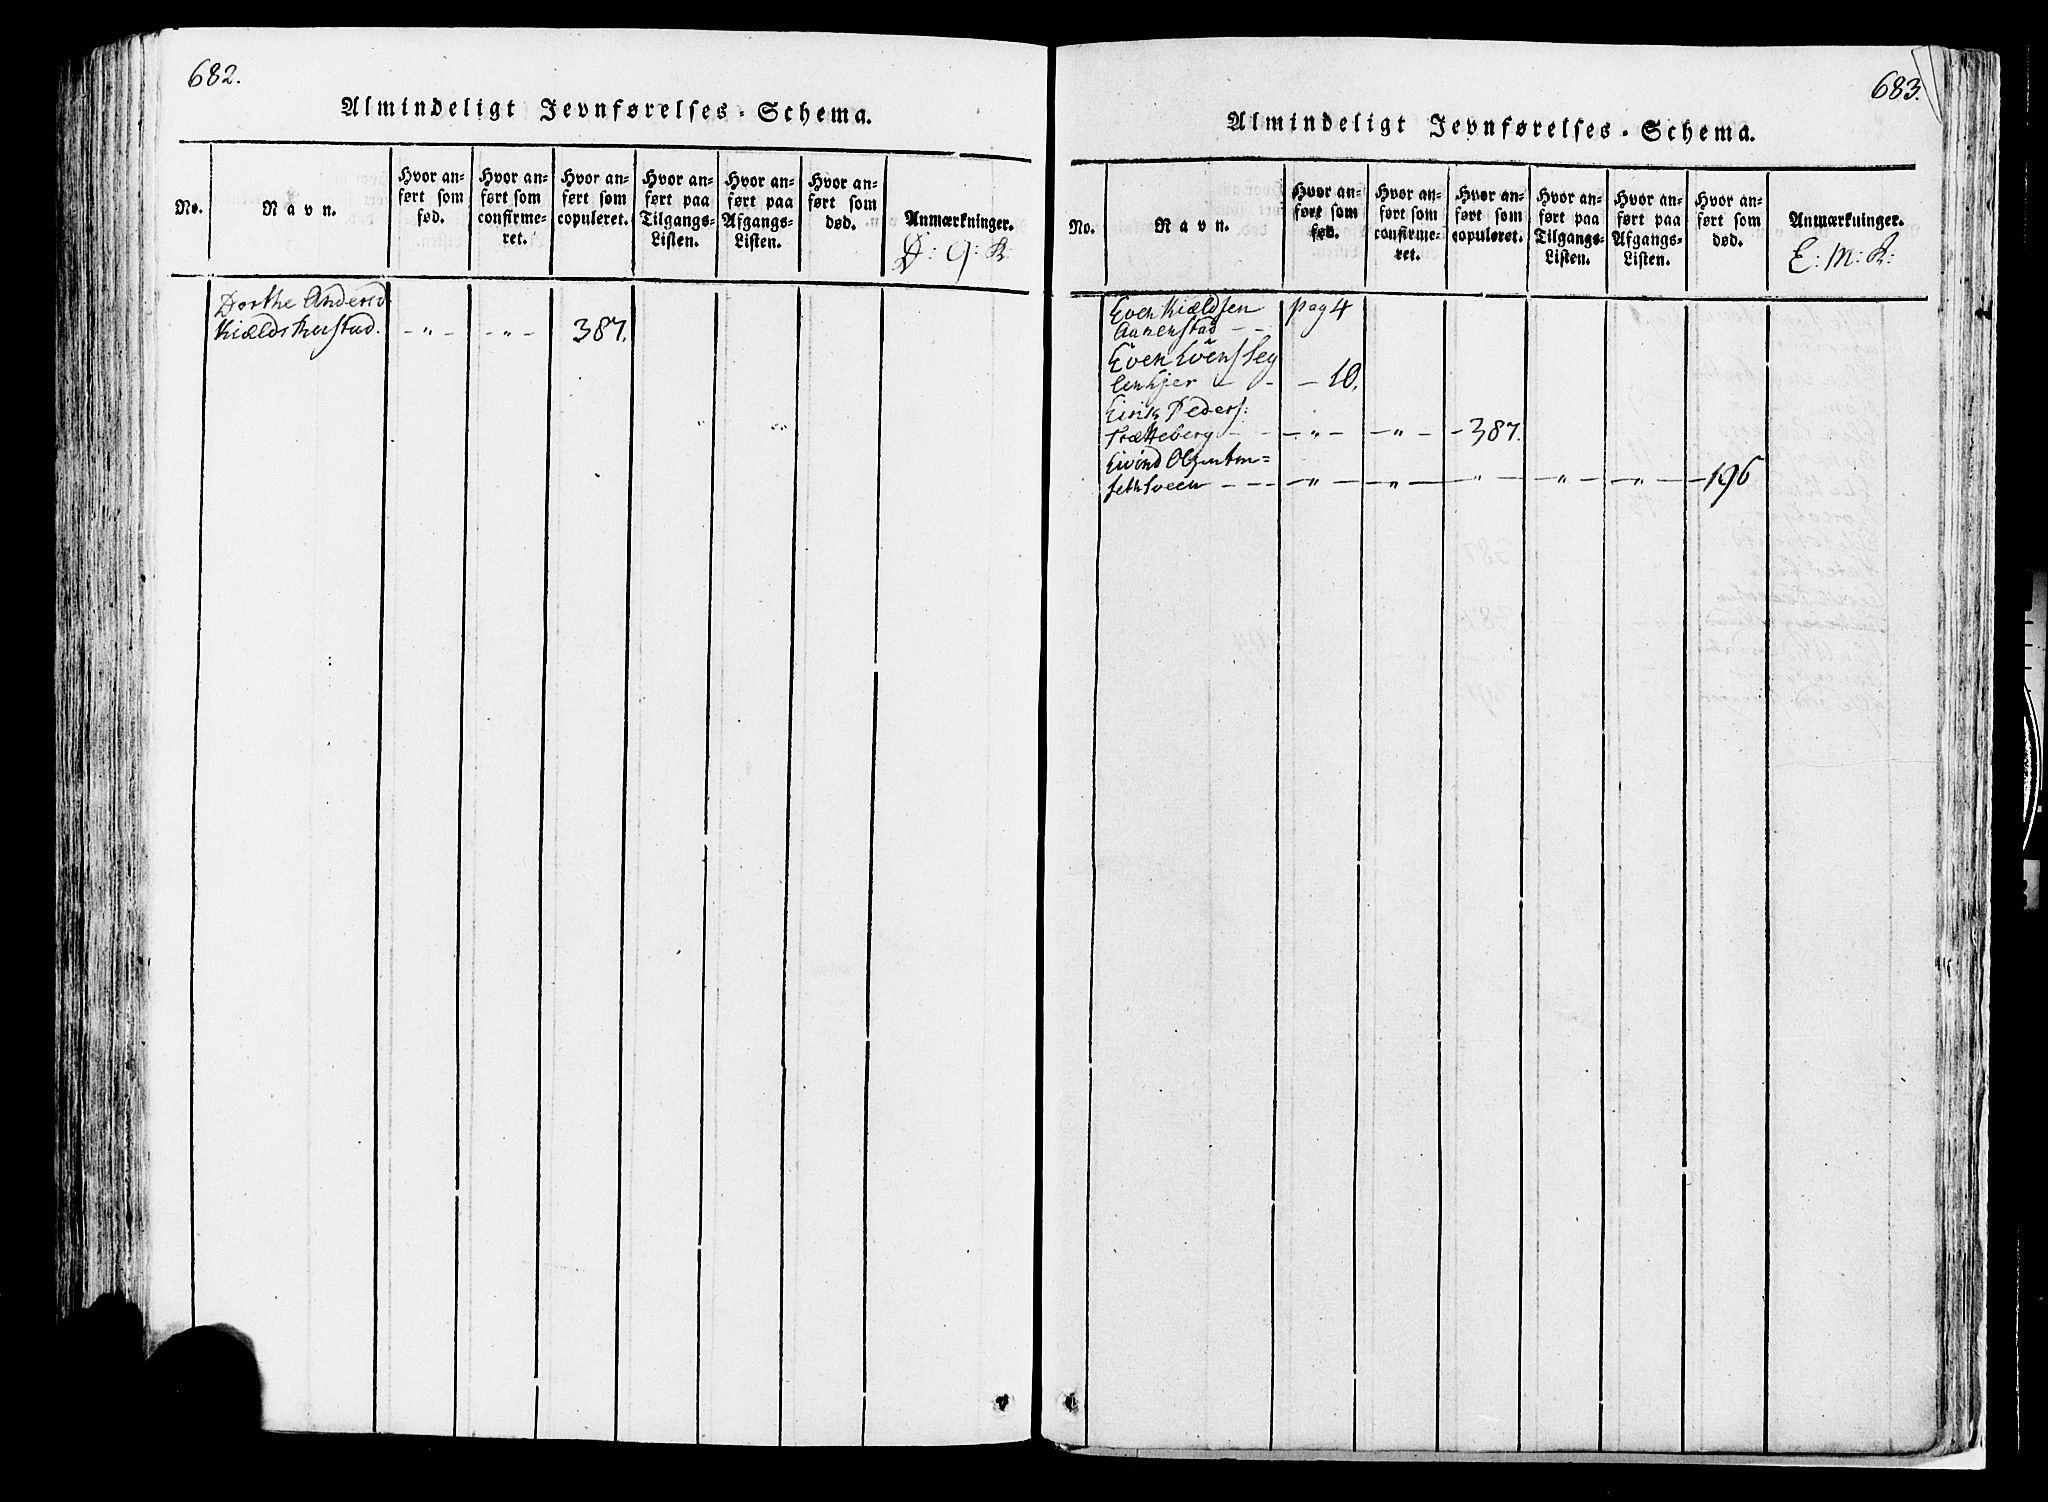 682.
Almindeligt Jevnførelses-Schema.
No.
Navn.
Hvor an-
ført som
fød.
Hvor an-
ført som
confirme-
ret.
Hvor an-
ført som
copuleret.
Hvor an-
ført paa
Tilgangs-
Listen.
Hvor an-
ført paa
Afgangs-
Listen.
Hvor an-
ført som
død.
Anmærkninger.
D: Q: K:
Dorthe Andersd:
- " - - " - 387.
683.
Almindeligt Jevnførelses-Schema.
No.
Navn.
Hvor an-
ført som
fød.
Hvor an-
ført som
confirme-
ret.
Hvor an-
ført som
copuleret.
Hvor an-
ført paa
Tilgangs-
Listen.
Hvor an-
ført paa
Afgangs-
Listen.
Hvor an-
ført som
død.
Anmærkninger.
E: M: K:
Even Kieldsen pag 4
Aanenstad - -
Even
- - - 10.
Eirik Peders:
Trætteberg - - - " - - " - - 387.
Eivind
- - - - " - - " - - " - - " - - " - - 196